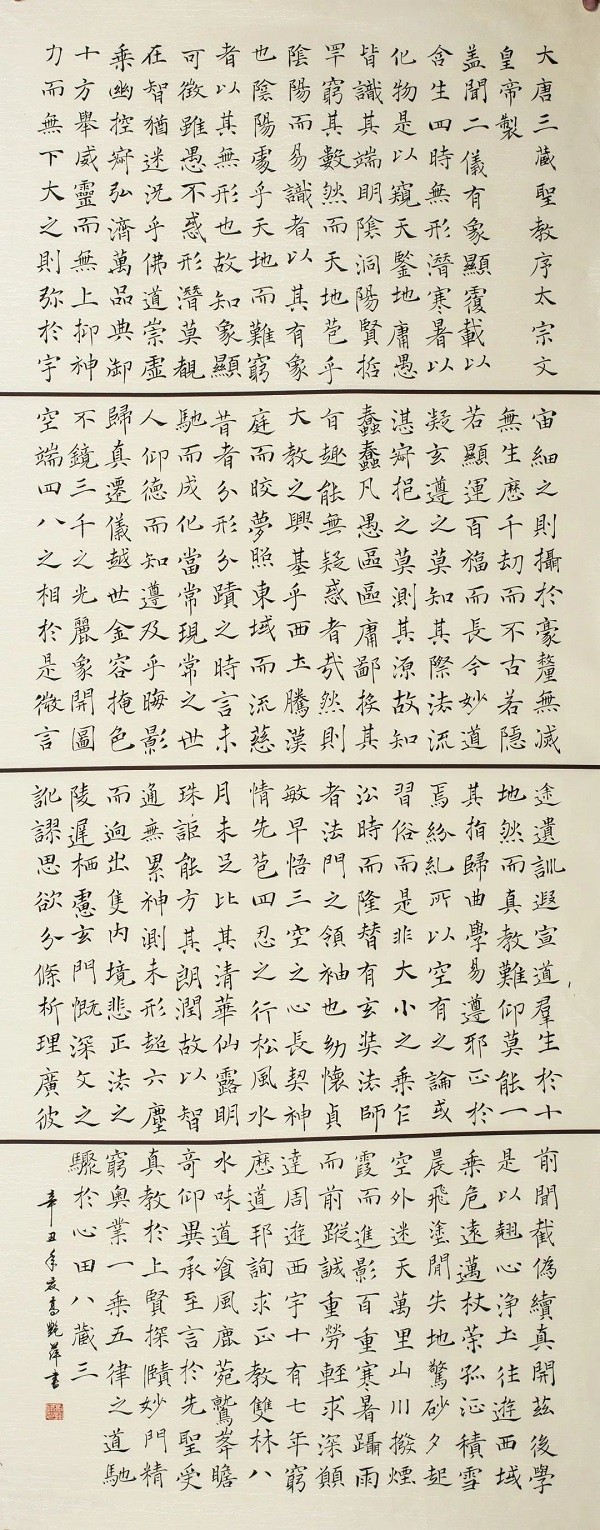 大唐三藏聖教序太宗文
皇帝製
盖聞二儀有象顯覆載以
含生四時無形潛寒暑以
化物是以窺天鑒地庸愚
皆識其端明陰洞陽賢哲
罕窮其數然而天地苞乎
陰陽而易識者以其有象
也陰陽處乎天地而難窮
者以其無形也故知象顯
可徵雖愚不惑形潛莫覩
在智猶迷況乎佛道崇虛
乘幽控寂弘濟萬品典御
十方舉威靈而無上抑神
力而無下大之則弥於宇
宙細之則攝於豪釐無滅
無生歷千劫而不古若隱
若顯運百福而長今妙道
凝玄遵之莫知其際法流
湛寂挹之莫測其源故知
蠢蠢凡愚區區庸鄙投其
旨趣能無疑惑者哉然則
大教之興基乎西土騰漢
庭而皎夢照東域而流慈
昔者分形分蹟之時言未
馳而成化當常現常之世
人仰德而知遵及乎晦影
歸真遷儀越世金容掩色
不鏡三千之光麗象開圖
空端四八之相於是微言
途遺訓遐宣道羣生於十
地然而真教難仰莫能一
其指歸曲學易遵邪正於
焉紛糺所以空有之論或
習俗而是非大小之乘乍
沿時而隆替有玄奘法師
者法門之領袖也幼懷貞
敏早悟三空之心長契神
情先苞四忍之行松風水
月未足比其清華仙露明
珠詎能方其朗潤故以智
通無累神測未形超六塵
而逈出隻内境悲正法之
陵遲栖慮玄門慨深文之
訛謬思欲分條析理廣彼
前聞截偽續真開茲後學
是以翹心淨土往遊西域
乘危遠邁杖策孤征積雪
晨飛塗閒失地驚砂夕起
空外迷天萬里山川撥煙
霞而進影百重寒暑躡雨
而前蹤誠重勞輕求深願
達周遊西宇十有七年窮
歷道邦詢求正教雙林八
水味道飡風鹿菀鷲峯瞻
奇仰異承至言於先聖受
真教於上賢探賾妙門精
窮奧業一乘五律之道馳
驟於心田八藏三
辛丑年夏高艷萍書